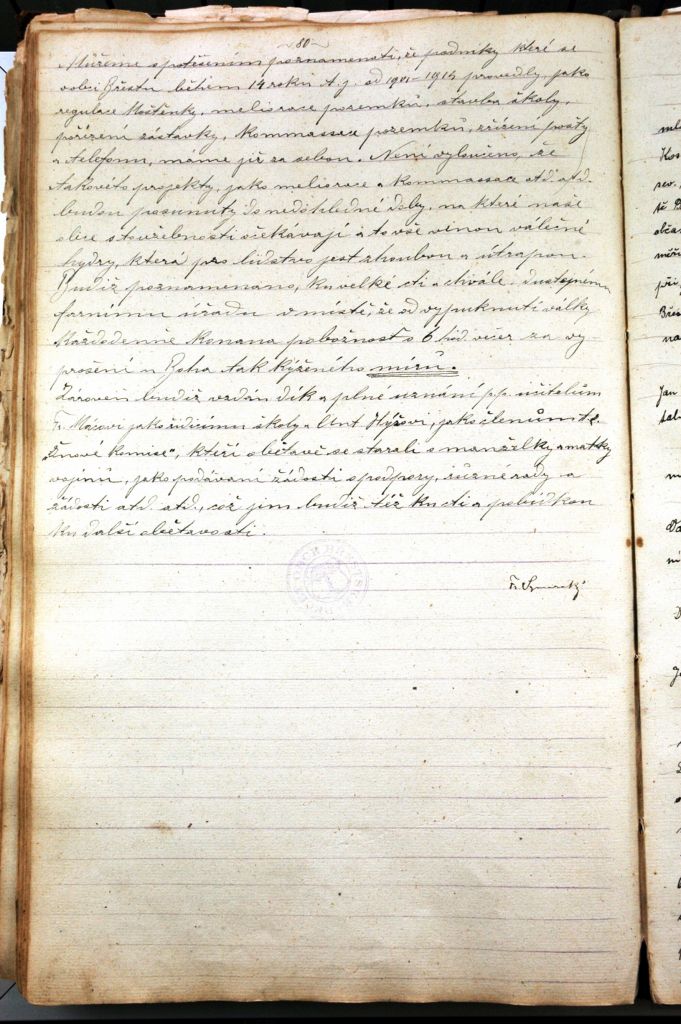 80
Můžeme s potěšením poznamenati, že podniky které se
v obci Břestu během 14 roků t. j. od 1901-1914 provedly, jako
regulace Moštěnky, meliorace pozemků, stavba školy,
pořízení zástavky, kommassace pozemků, zřízení pošty
a telefonu, máme již za sebou. Není vyloučeno, že
takovéto projekty, jako meliorace a kommassace atd. atd.
budou posunuty do nedohledné doby, na které naše
obce s toužebností očekávají a to vše vinou válečné
hydry, která pro lidstvo jest zhoubou a útrapou.
Budiž poznamenáno, ku velké cti a chvále, Důstojnému
farnímu úřadu v místě, že od vypuknutí války
každodenně konána pobožnost o 6 hod večer za vy
prošení u Boha tak kýženého míru.
Zároveň budiž vzdán dík a plné uznání p.p. učitelům
Fr. Mácovi jako řidícímu školy a Ant. Hýžovi, jako členům t. z.
"Žňové komise", kteří obětavě se starali o manželky a matky
vojínů, jako podávání žádostí o podpory, různé rady a
žádosti atd. atd., což jim budiž též ku cti a pobídkou
ku další obětavosti.
Fr.